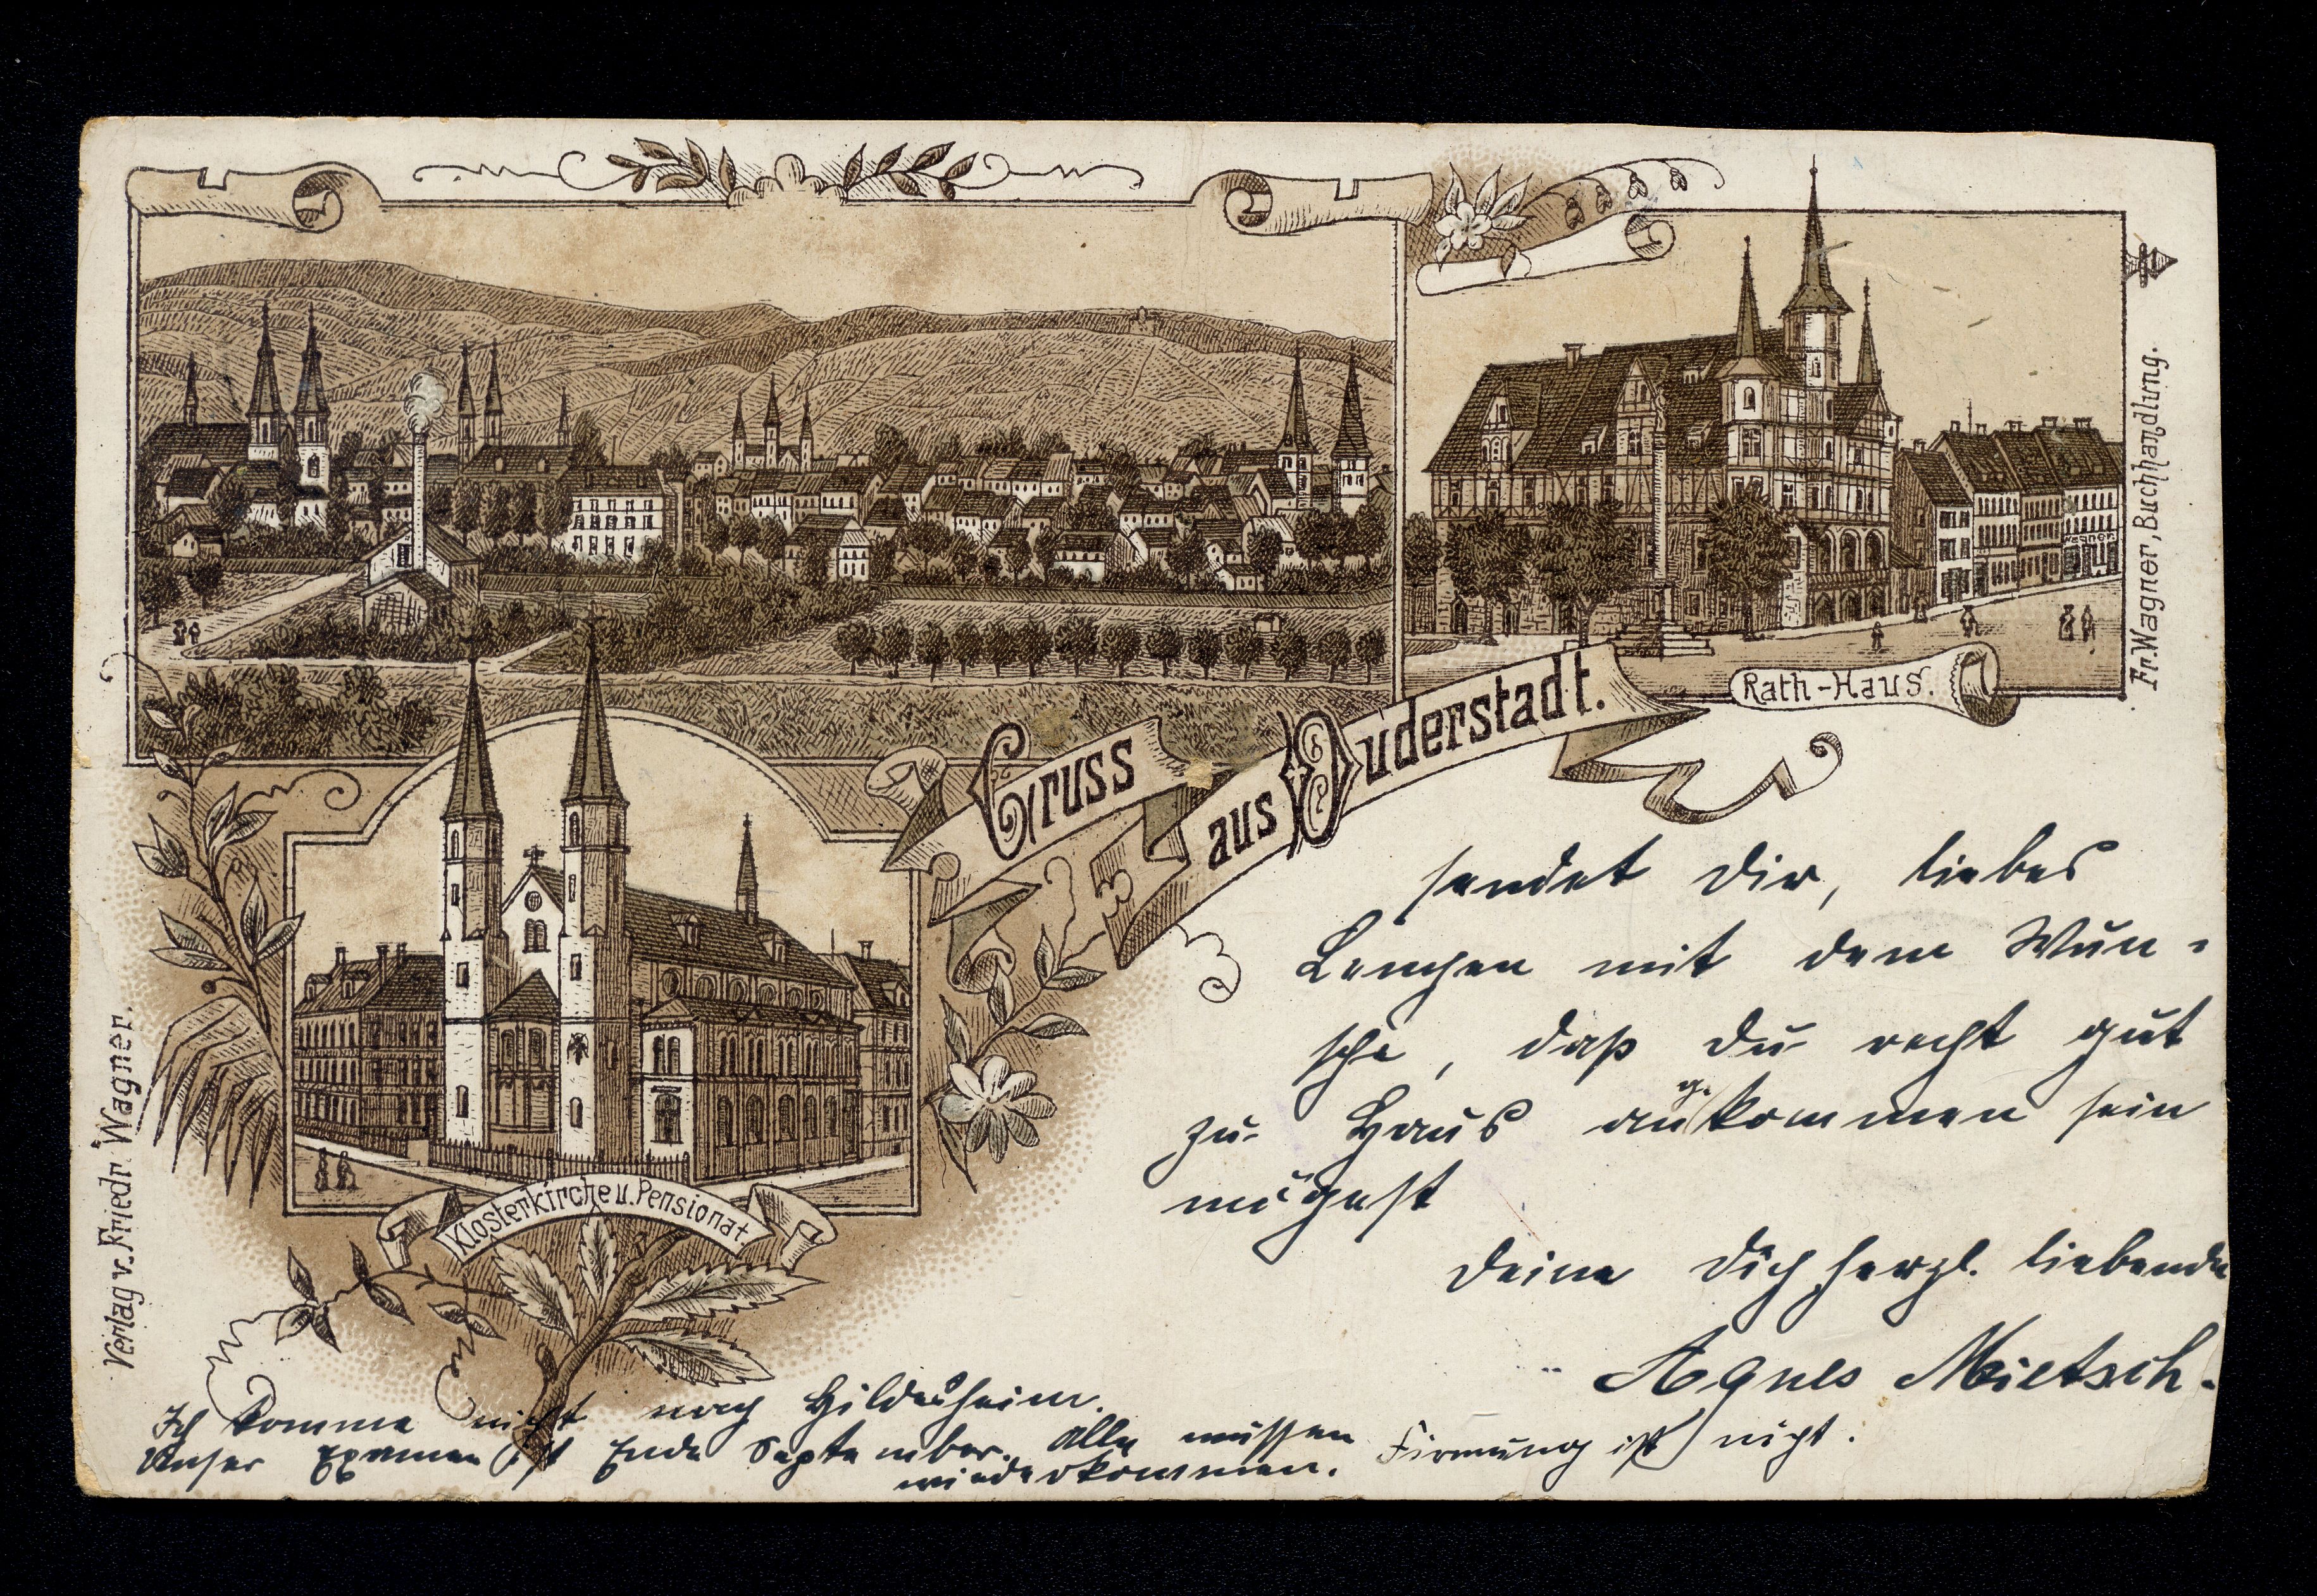 Gruss
aus Duderstadt.
Rath-Haus.
Wagner
Fr. Wagner, Buchhandlung.
Klosterkirche u. Pensionat
Verlag v. Friedr. Wagner.
sendet Dir, liebes
Lenchen mit dem Wun-
sche, daß Du recht gut
zu Haus angekommen sein
mögest
Deine Dich herzl. liebende
Agnes Mietsch.
Ich komme nicht nach Hildesheim.
Unser Examen ist Ende September. Alle müssen
wiederkommen.
Firmung ist nicht.